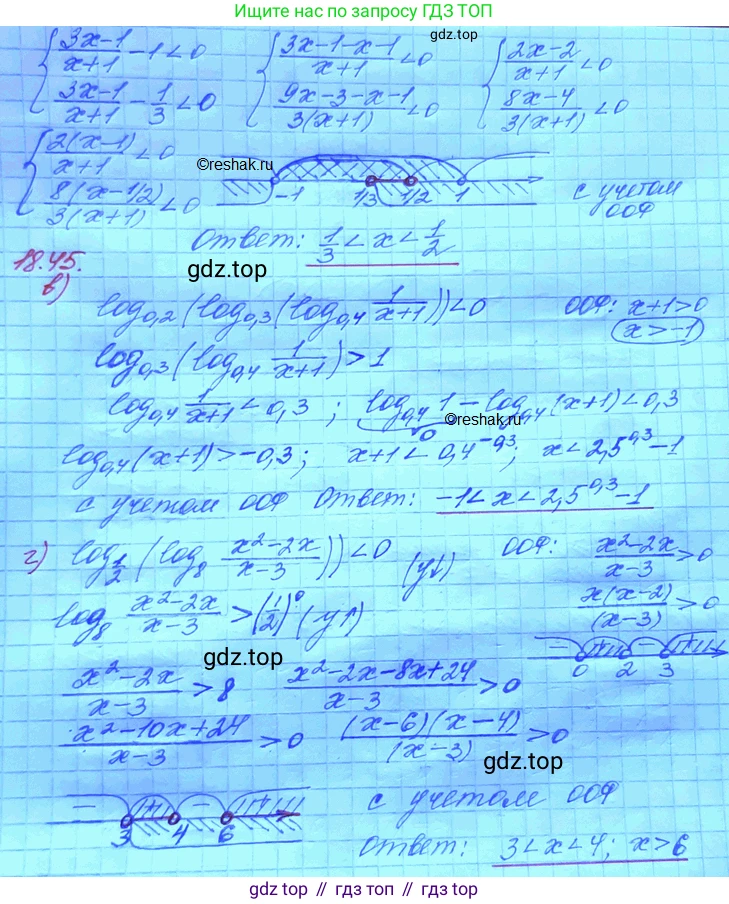 Ищите нас по запросу ГДЗ ТОП
gdz.top
{ (3x-1)/(x+1) - 1 < 0 { (3x-1-x-1)/(x+1) < 0 { (2x-2)/(x+1) < 0
(3x-1)/(x+1) - 1/3 < 0 (9x-3-x-1)/(3(x+1)) < 0 (8x-4)/(3(x+1)) < 0
{ 2(x-1)/(x+1) < 0
8(x-1/2)/(3(x+1)) < 0
©reshak.ru
-1 1/3 1/2 1
с учетом ООФ
Ответ: 1/3 < x < 1/2
18.45.
gdz.top
в)
log₀,₂(log₀,₃(log₀,₄ 1/(x+1))) < 0 ООФ: x+1>0
(x>-1)
log₀,₃(log₀,₄ 1/(x+1)) > 1
log₀,₄ 1/(x+1) < 0,3 ; log₀,₄ 1 - log₀,₄ (x+1) < 0,3
©reshak.ru
0
log₀,₄(x+1) > -0,3; x+1 < 0,4^-0,3; x < 2,5^0,3 - 1
с учетом ООФ Ответ: -1 < x < 2,5^0,3 - 1
г) log_1/2 (log₈ (x²-2x)/(x-3))) < 0 (у↓) ООФ: (x²-2x)/(x-3) > 0
log₈ (x²-2x)/(x-3) > (1/2)⁰ (у↑) x(x-2)/(x-3) > 0
- + - +
0 2 3
gdz.top
(x²-2x)/(x-3) > 8 (x²-2x-8x+24)/(x-3) > 0
(x²-10x+24)/(x-3) > 0 (x-6)(x-4)/(x-3) > 0
gdz.top
- + - +
3 4 6
с учетом ООФ
Ответ: 3 < x < 4; x > 6
gdz.top // гдз топ // gdz top